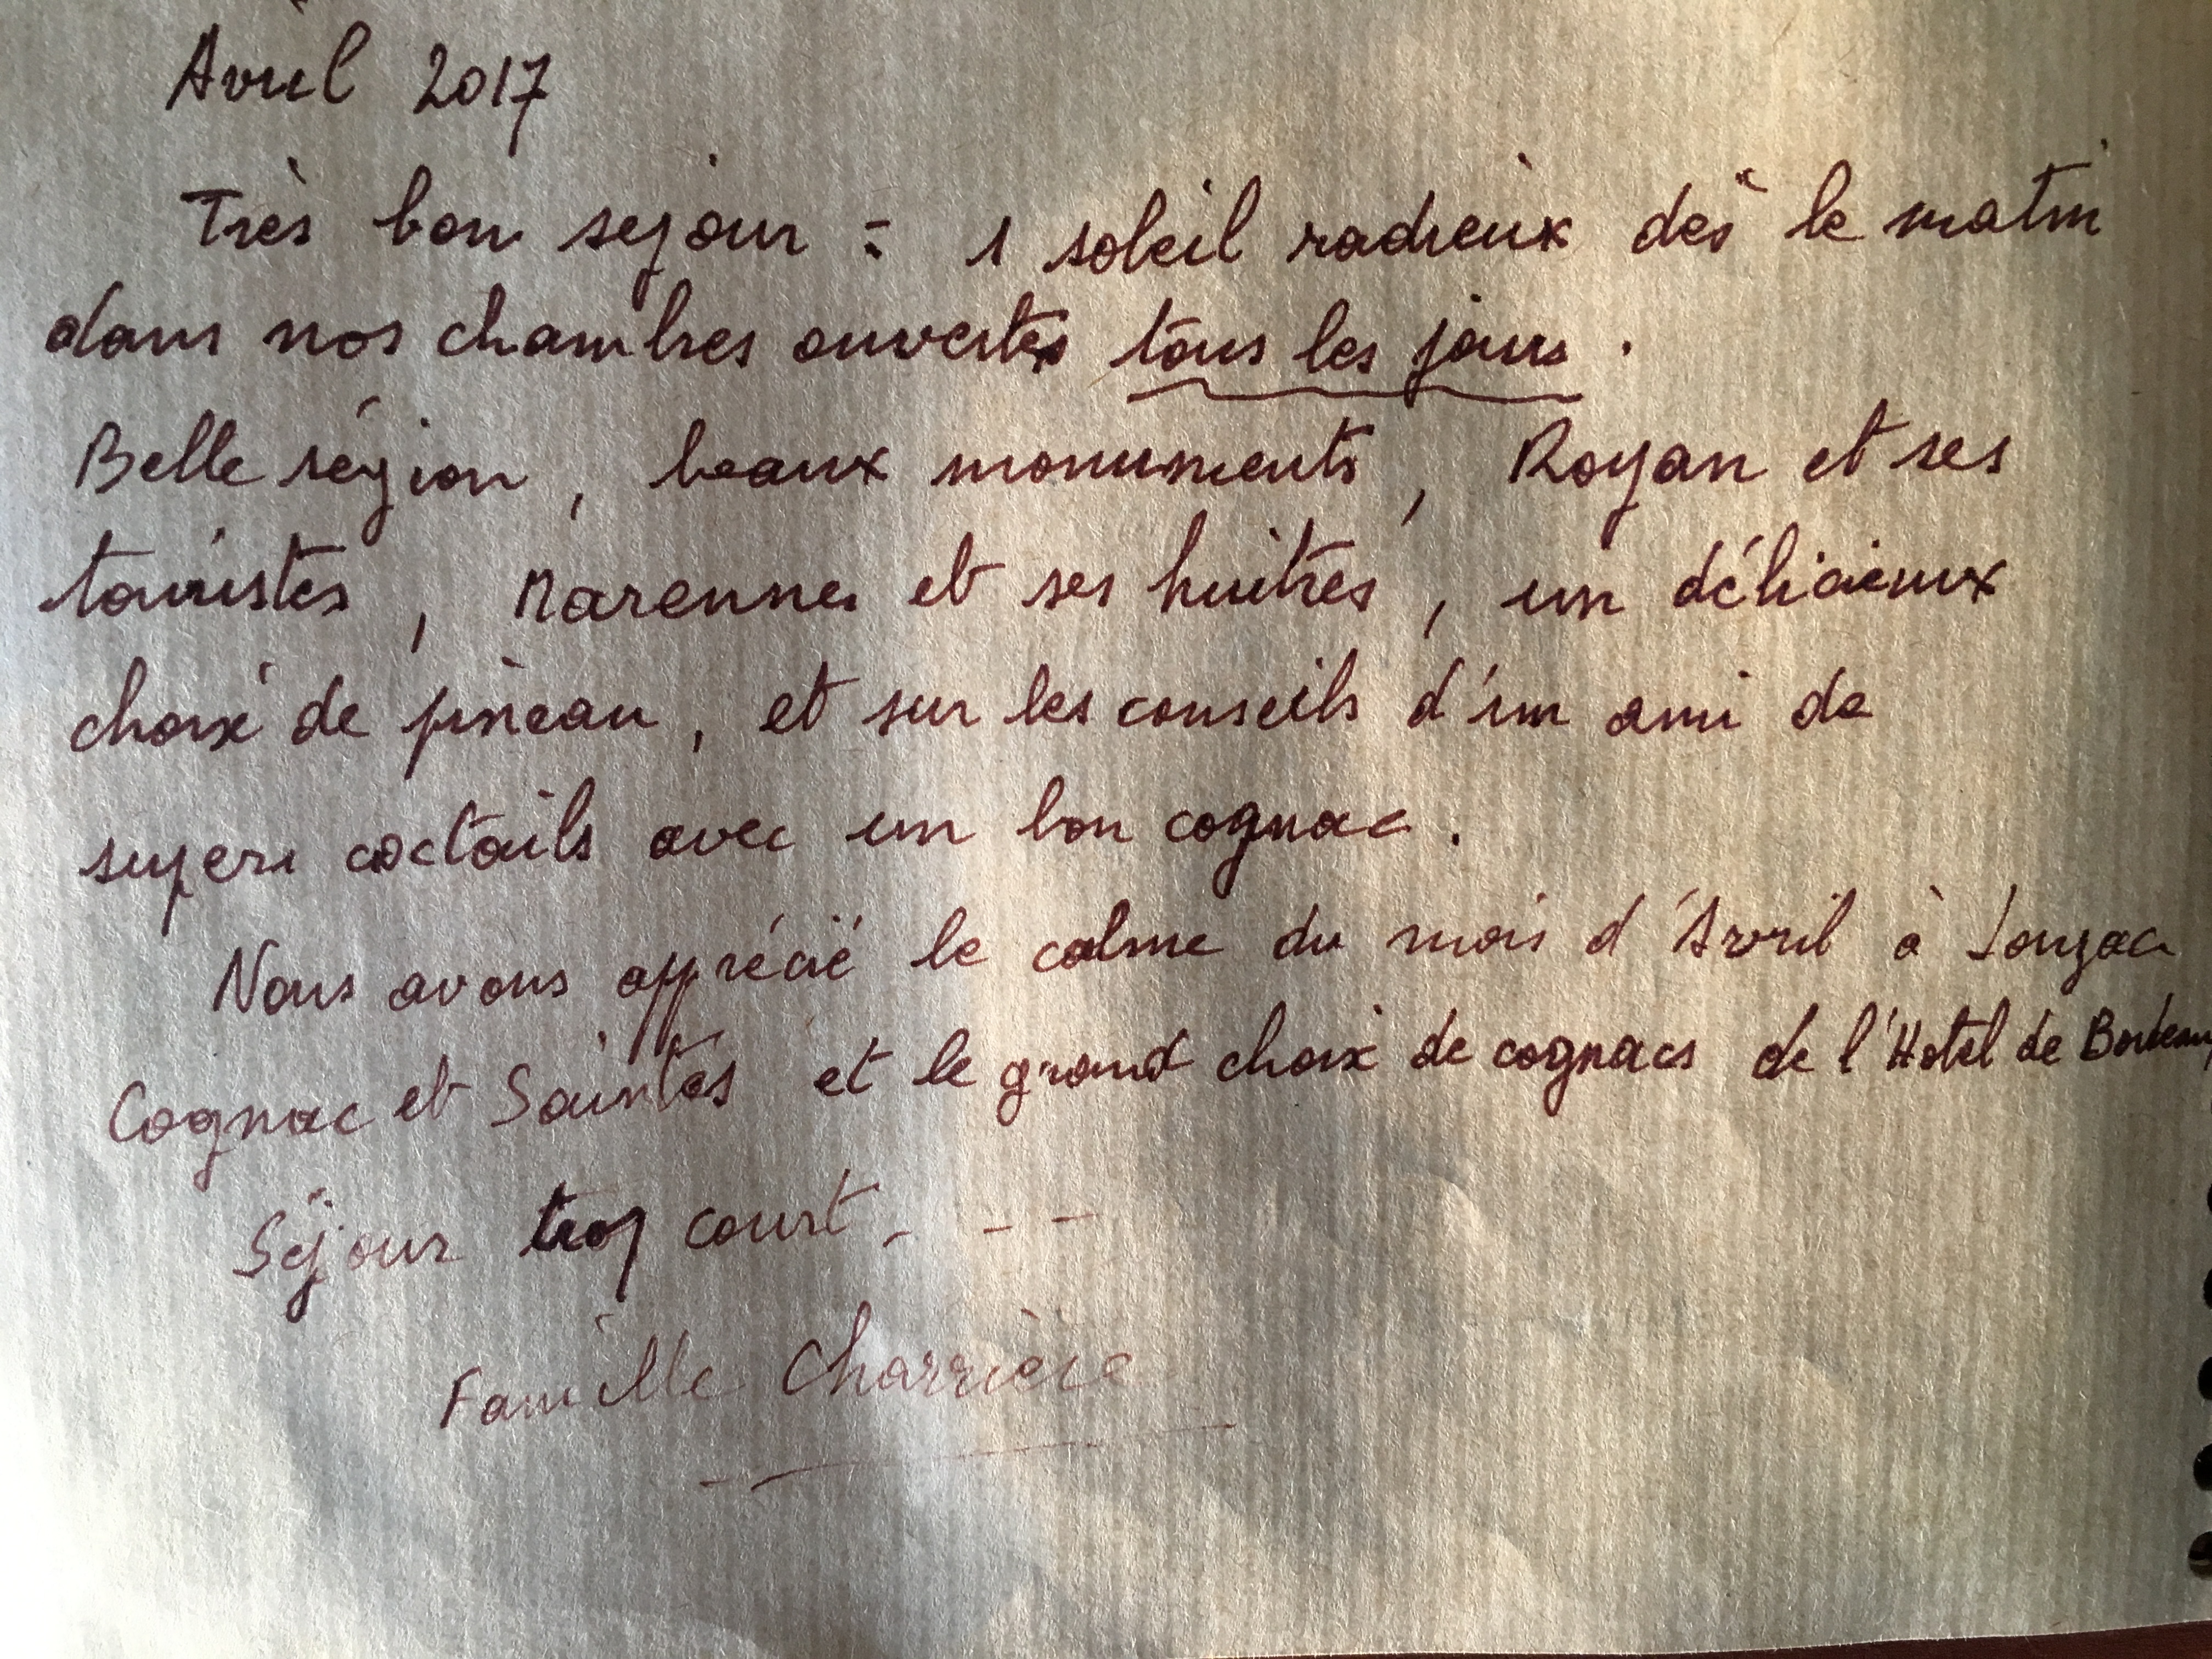 Avril 2017
Très bon sejour = 1 soleil radieux dès le matin
dans nos chambres ouvertes tous les jours .
Belle région , beaux monuments , Royan et ses
touristes , Marennes et ses huitres , un délicieux
choix de pineau , et sur les conseils d'un ami de
supers coctails avec un bon cognac .
Nous avons apprécié le calme du mois d'Avril à Jonzac
Cognac et Saintes et le grand choix de cognacs de l'Hotel de Bordeaux
Séjour trop court - - -
Famille Charrière